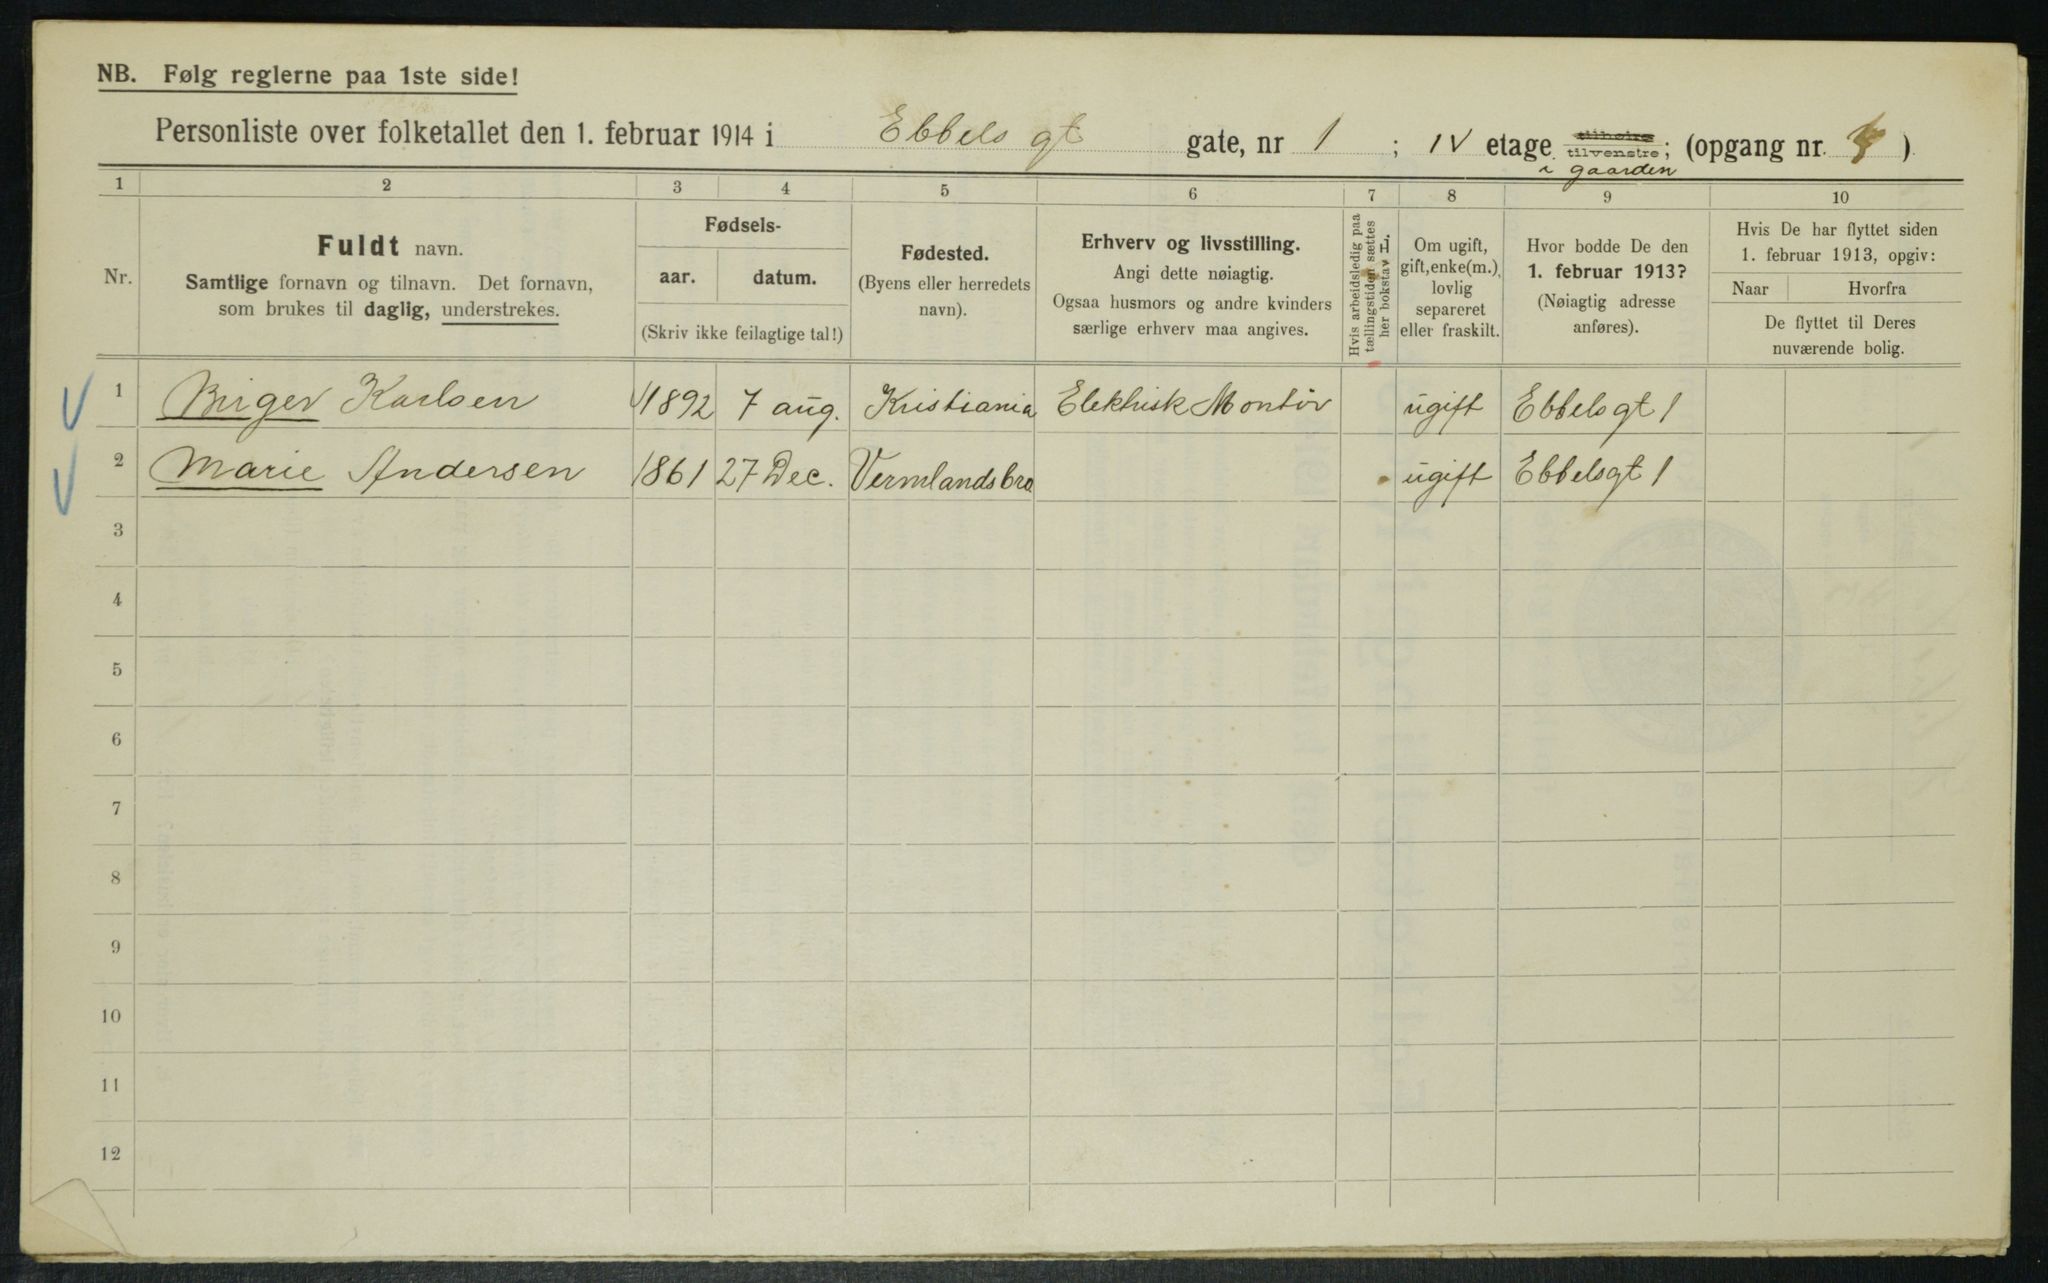 NB. Følg reglerne paa 1ste side!
Personliste over folketallet den 1. februar 1914 i Ebbels gt gate, nr 1 ; IV etage tilhøire tilvenstre; (opgang nr. )
i gaarden
1 2 3 4 5 6 7 8 9 10
Nr.
Fuldt navn.
Samtlige fornavn og tilnavn. Det fornavn,
som brukes til daglig, understrekes.
Fødsels-
aar. datum.
(Skriv ikke feilagtige tal!)
Fødested.
(Byens eller herredets
navn).
Erhverv og livsstilling.
Angi dette nøiagtig.
Ogsaa husmors og andre kvinders
særlige erhverv maa angives.
Hvis arbeidsledig paa
tællingstiden sættes
her bokstav L.
Om ugift,
gift, enke(m.),
lovlig
separeret
eller fraskilt.
Hvor bodde De den
1. februar 1913?
(Nøiagtig adresse
anføres).
Hvis De har flyttet siden
1. februar 1913, opgiv:
Naar Hvorfra
De flyttet til Deres
nuværende bolig.
1 Birger Karlsen 1892 7 aug. Kristiania Elektrisk Montör ugift Ebbelsgt 1
2 Marie Andersen 1861 27 Dec. Vermlandsbro ugift Ebbelsgt 1
3
4
5
6
7
8
9
10
11
12